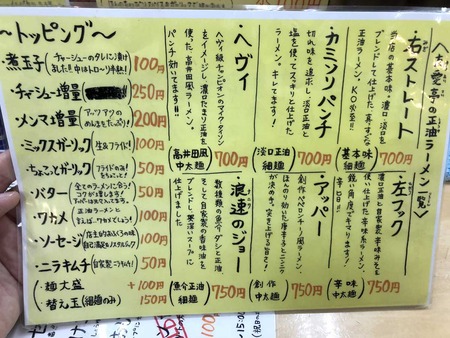 〜トッピング〜
・煮玉子
チャーシューのタレに漬け
ました！中はトローリ半熟！
100円
・チャーシュー増量
250円
・メンマ増量
アツアツの
めんまをたっぷり！
200円
・ミックスガーリック
生&フライに！
100円
・ちょこっとガーリック
フライドのみ！
50円
・バター
全てのラーメンに合う！
コクが違います！
50円
・ワカメ
正油ラーメンと
100円
・ソーセージ
100円
・ニラキムチ
自家製ニラキムチ！
50円
・麺大盛
+100円
・替え玉（細麺のみ）
150円
亭の正油ラーメン一覧
・右ストレート
当店の基本味。濃口、淡口を
ブレンドして仕上げた、真すぐな
正油ラーメン。KO必至!!
基本味
細麺
700円
・カミソリパンチ
切れ味を追求し、淡口正油と
塩を使ってスッキリと仕上げた
ラーメン。キレてます！
淡口正油
細麺
700円
・ヘヴィ
ヘヴィ級チャンピオンのマイクタイソン
をイメージし、濃口たまり正油を
使った、高井田風ラーメン。
パンチ効いてます!!
高井田風
中太麺
700円
・左フック
濃口正油と自家製辛味みそを
使い仕上げた辛味系ラーメン。
鋭い角度でキマります！
辛口です!!
辛味
中太麺
750円
・アッパー
創作ペペロンチーノ風ラーメン。
ほんのり効いた唐辛子とニンニク
が決め手。突き上げる旨さ！
創作
中太麺
750円
・浪速のジョー
数種類の魚介ダシと正油、
そして自家製の香味油を
ブレンドし、奥深いスープに
仕上げました。
魚介正油
細麺
750円